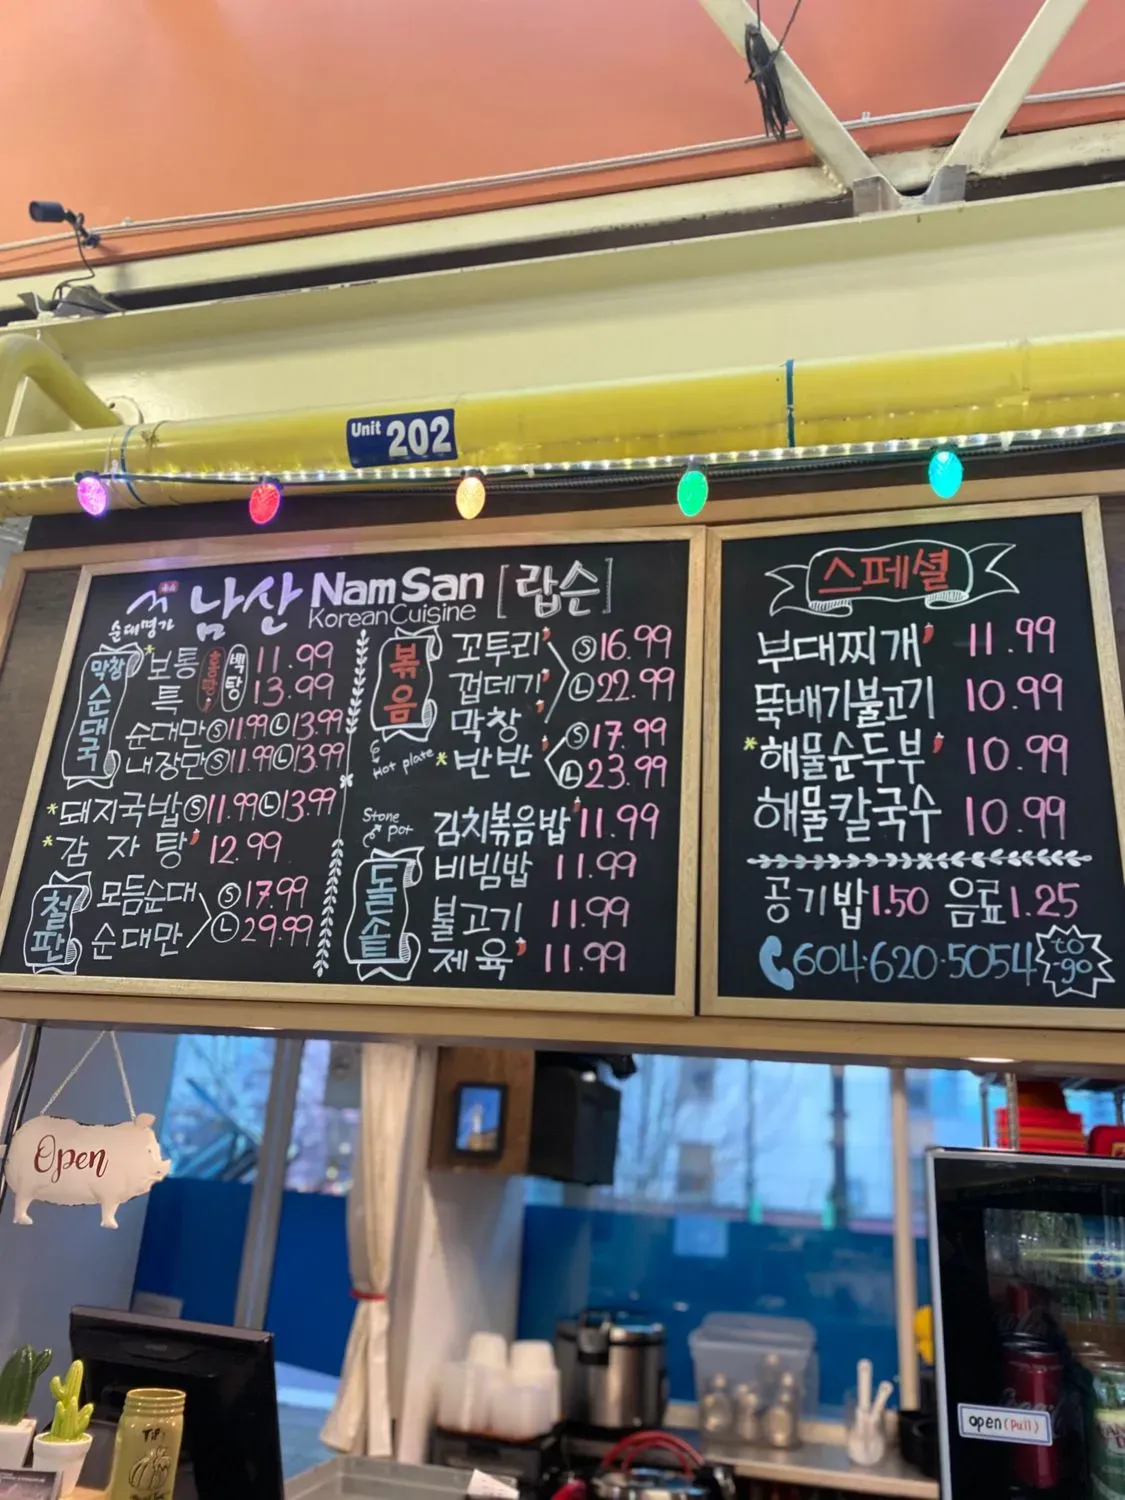 Unit 202
남산 NamSan [랍슨]
Korean Cuisine
순대명가
막창순댓국
보통 백탕 11.99
특 13.99
순대만 S 11.99 L 13.99
내장만 S 11.99 L 13.99
*돼지국밥 S 11.99 L 13.99
*감자탕 12.99
철판
모듬순대 S 17.99
순대만 L 29.99
볶음
Hot plate
꼬투리 S 16.99
껍데기 L 22.99
막창 S 17.99
*반반 L 23.99
Stone pot
돌솥
김치볶음밥 11.99
비빔밥 11.99
불고기 11.99
제육 11.99
스페셜
부대찌개 11.99
뚝배기불고기 10.99
*해물순두부 10.99
해물칼국수 10.99
공기밥 1.50 음료 1.25
604·620·5054 to-go
Open
TIP
open (Pull)